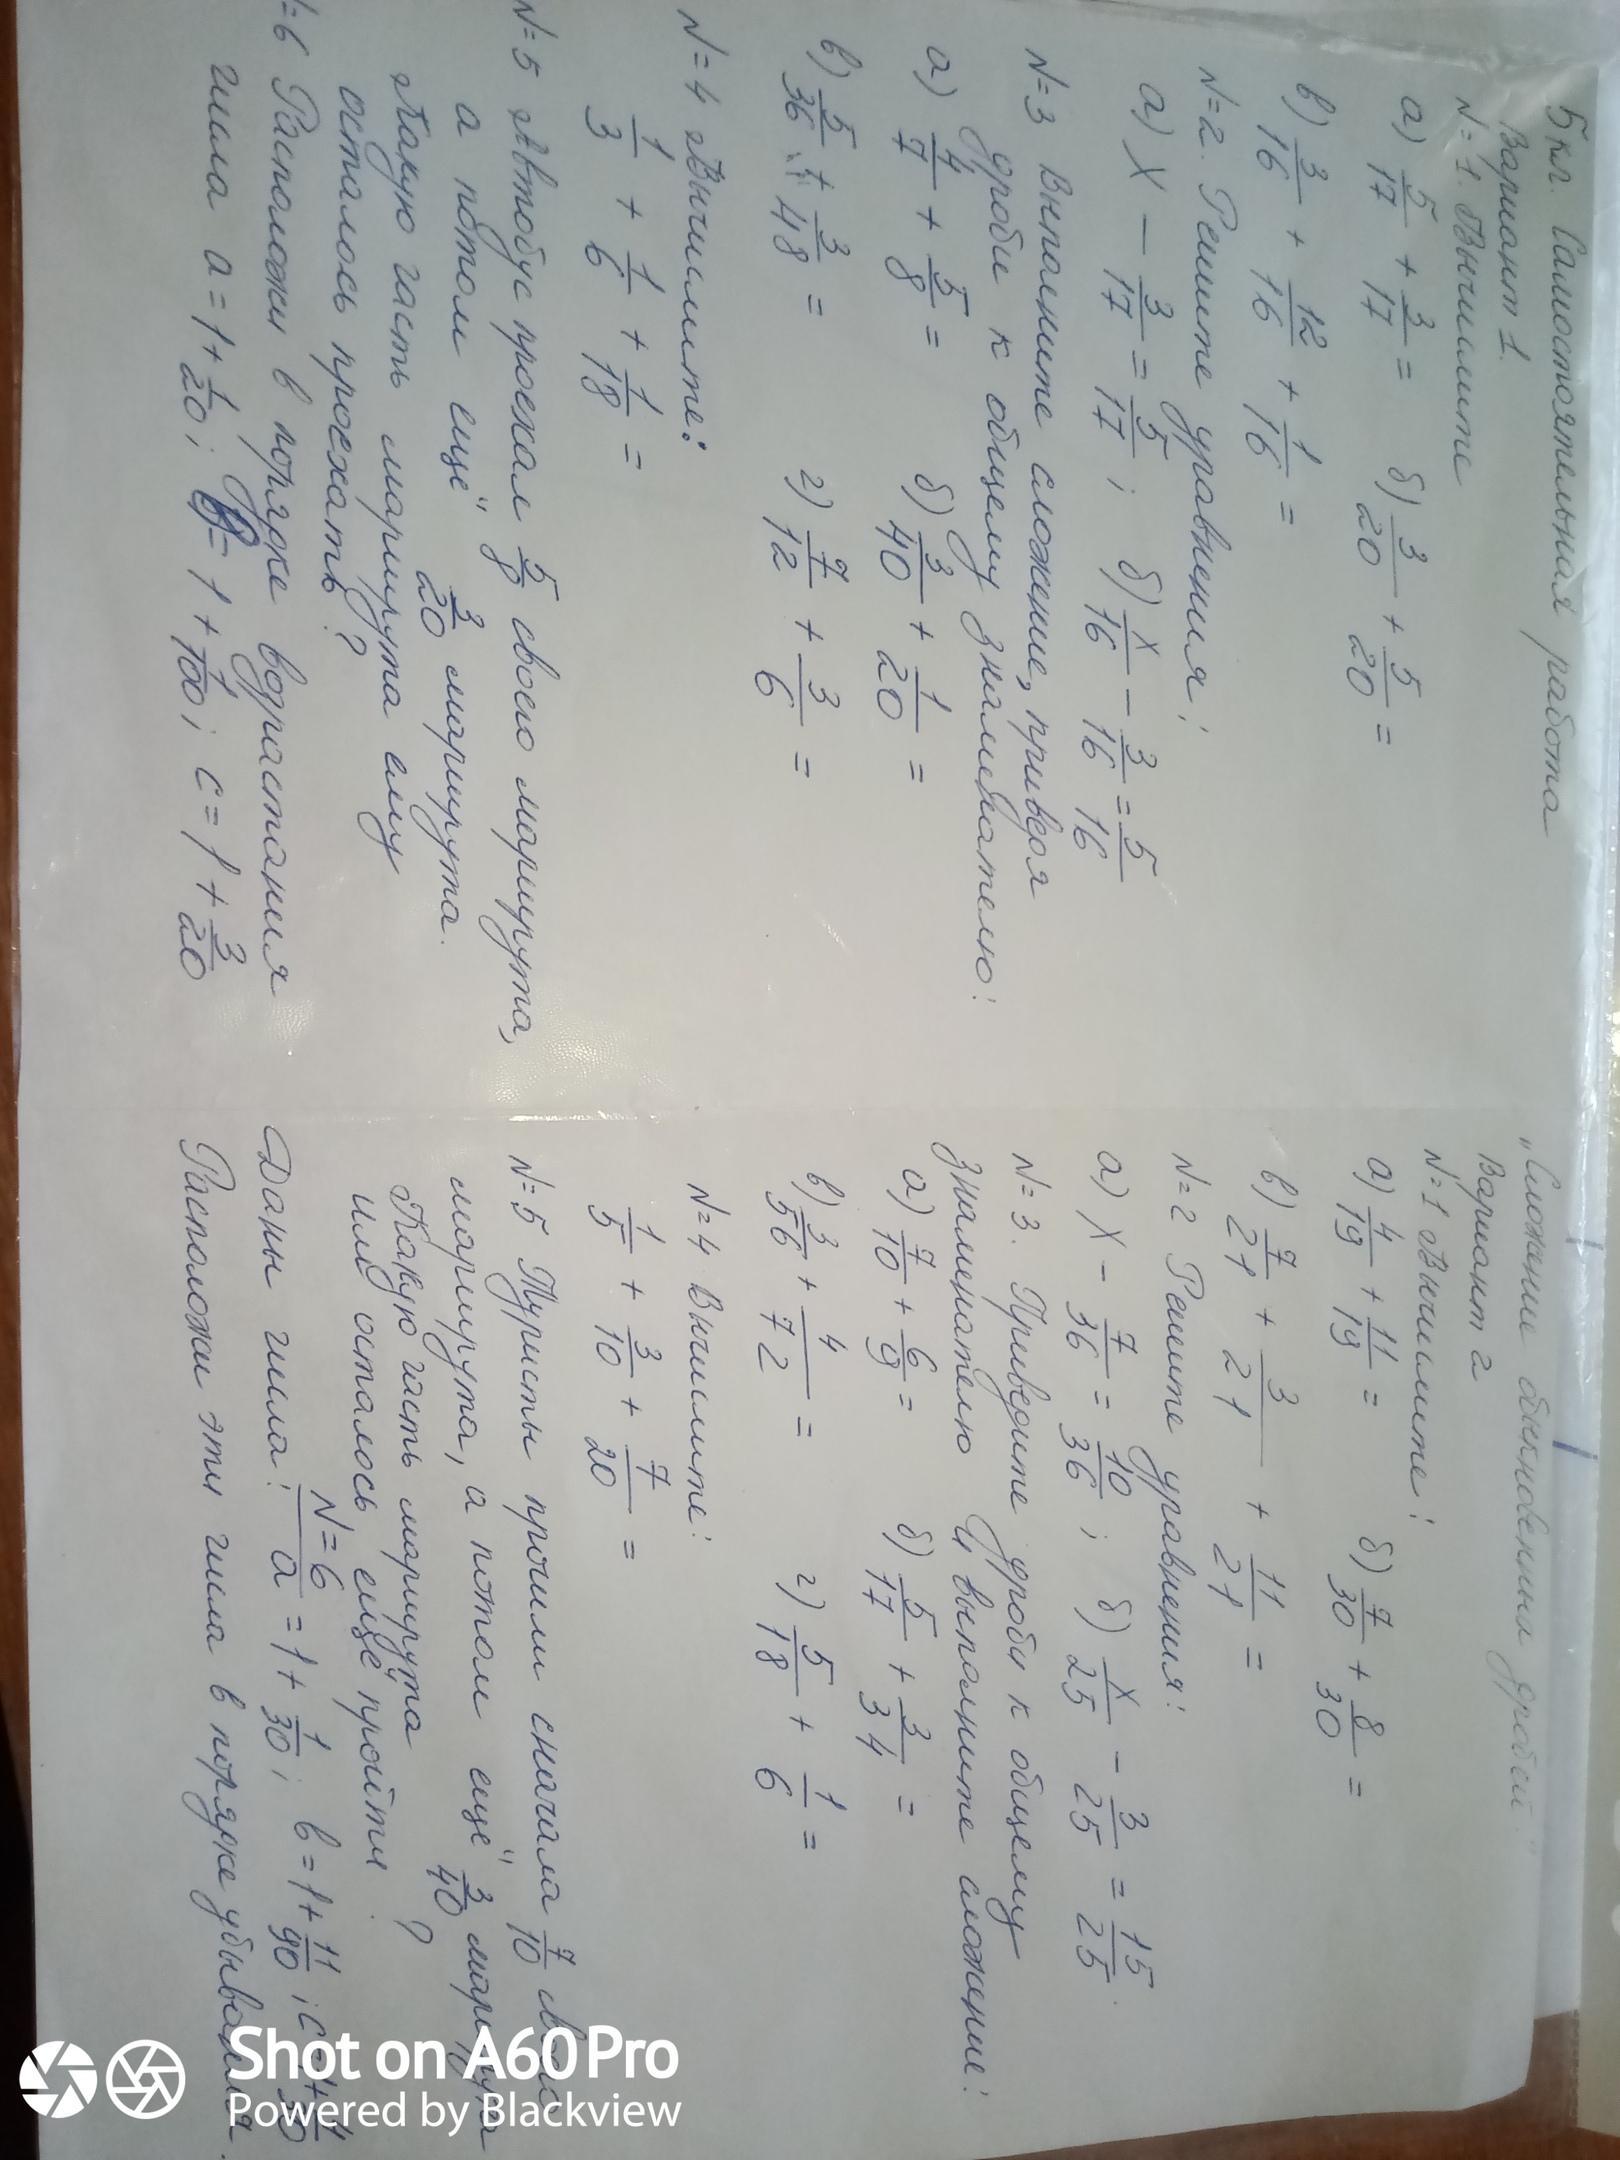 5 кл. Самостоятельная работа
Вариант 1.
№1. Вычислите
а) 5/17 + 3/17 = б) 3/20 + 5/20 =
в) 3/16 + 12/16 + 1/16 =
№2. Решите уравнения:
а) x - 3/17 = 5/17; б) x/16 - 3/16 = 5/16
№3 Выполните сложение, приведя
дроби к общему знаменателю:
а) 4/7 + 5/8 = б) 3/40 + 1/20 =
в) 5/36 + 3/48 = г) 7/12 + 3/6 =
№4 Вычислите:
1/3 + 1/6 + 1/18 =
№5 Автобус проехал 5/8 своего маршрута,
а потом ещё 3/20 маршрута.
Какую часть маршрута ему
осталось проехать?
№6 Расположи в порядке возрастания
числа а = 1 + 1/20; в = 1 + 1/100; с = 1 + 3/20
„Сложение обыкновенных дробей"
Вариант 2
№1 Вычислите:
а) 4/19 + 11/19 = б) 7/30 + 8/30 =
в) 7/21 + 3/21 + 11/21 =
№2 Решите уравнения:
а) x - 7/36 = 10/36; б) x/25 - 3/25 = 15/25.
№3. Приведите дроби к общему
знаменателю и выполните сложение:
а) 7/10 + 6/9 = б) 5/17 + 3/34 =
в) 3/56 + 4/72 = г) 5/18 + 1/6 =
№4 Вычислите:
1/5 + 3/10 + 7/20 =
№5 Туристы прошли сначала 7/10
маршрута, а потом ещё 3/40 маршрута
Какую часть маршрута
им осталось ещё пройти?
№6
Даны числа: а = 1 + 1/30; в = 1 + 11/90; с
Расположи эти числа в порядке убывания.
Shot on A60Pro
Powered by Blackview